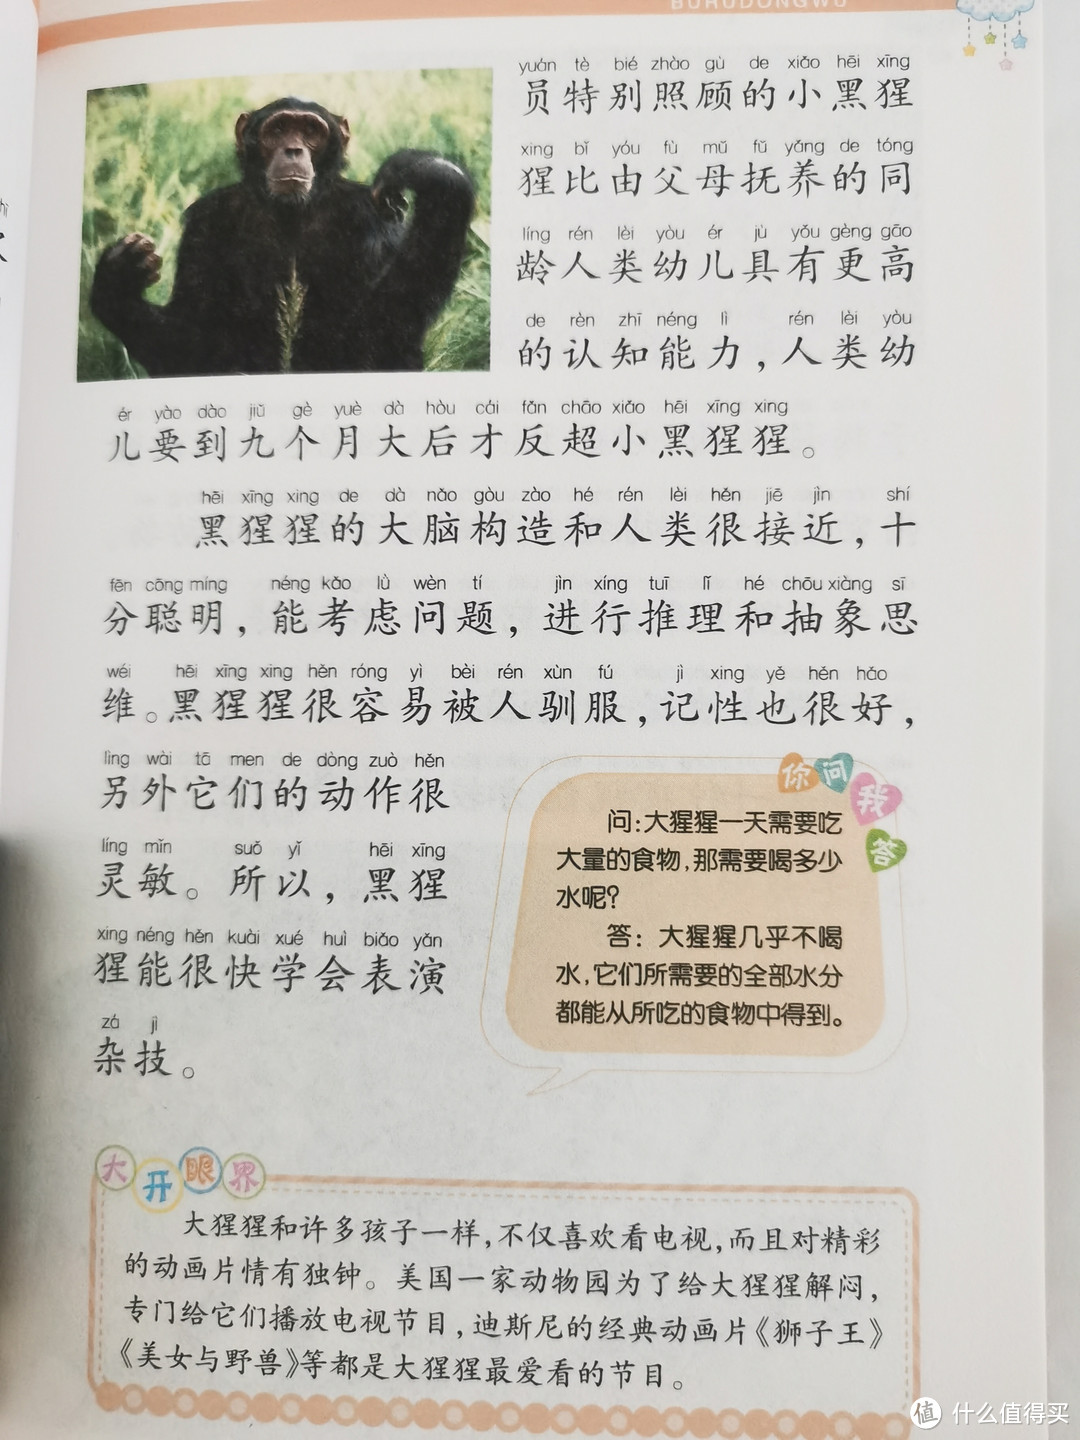 BURUDONGWU
yuán tè bié zhào gù de xiǎo hēi xīng
员特别照顾的小黑猩
xing bǐ yóu fù mǔ fǔ yǎng de tóng
猩比由父母抚养的同
líng rén lèi yòu ér jù yǒu gèng gāo
龄人类幼儿具有更高
de rèn zhī néng lì rén lèi yòu
的认知能力，人类幼
ér yào dào jiǔ gè yuè dà hòu cái fǎn chāo xiǎo hēi xīng xing
儿要到九个月大后才反超小黑猩猩。
hēi xīng xing de dà nǎo gòu zào hé rén lèi hěn jiē jìn shí
黑猩猩的大脑构造和人类很接近，十
fēn cōng míng néng kǎo lǜ wèn tí jìn xíng tuī lǐ hé chōu xiàng sī
分聪明，能考虑问题，进行推理和抽象思
wéi hēi xīng xing hěn róng yì bèi rén xùn fú jì xing yě hěn hǎo
维。黑猩猩很容易被人驯服，记性也很好，
lìng wài tā men de dòng zuò hěn
另外它们的动作很
líng mǐn suǒ yǐ hēi xīng
灵敏。所以，黑猩
xing néng hěn kuài xué huì biǎo yǎn
猩能很快学会表演
zá jì
杂技。
你问我答
问：大猩猩一天需要吃
大量的食物，那需要喝多少
水呢？
答：大猩猩几乎不喝
水，它们所需要的全部水分
都能从所吃的食物中得到。
大开眼界
大猩猩和许多孩子一样，不仅喜欢看电视，而且对精彩
的动画片情有独钟。美国一家动物园为了给大猩猩解闷，
专门给它们播放电视节目，迪斯尼的经典动画片《狮子王》
《美女与野兽》等都是大猩猩最爱看的节目。
值 什么值得买